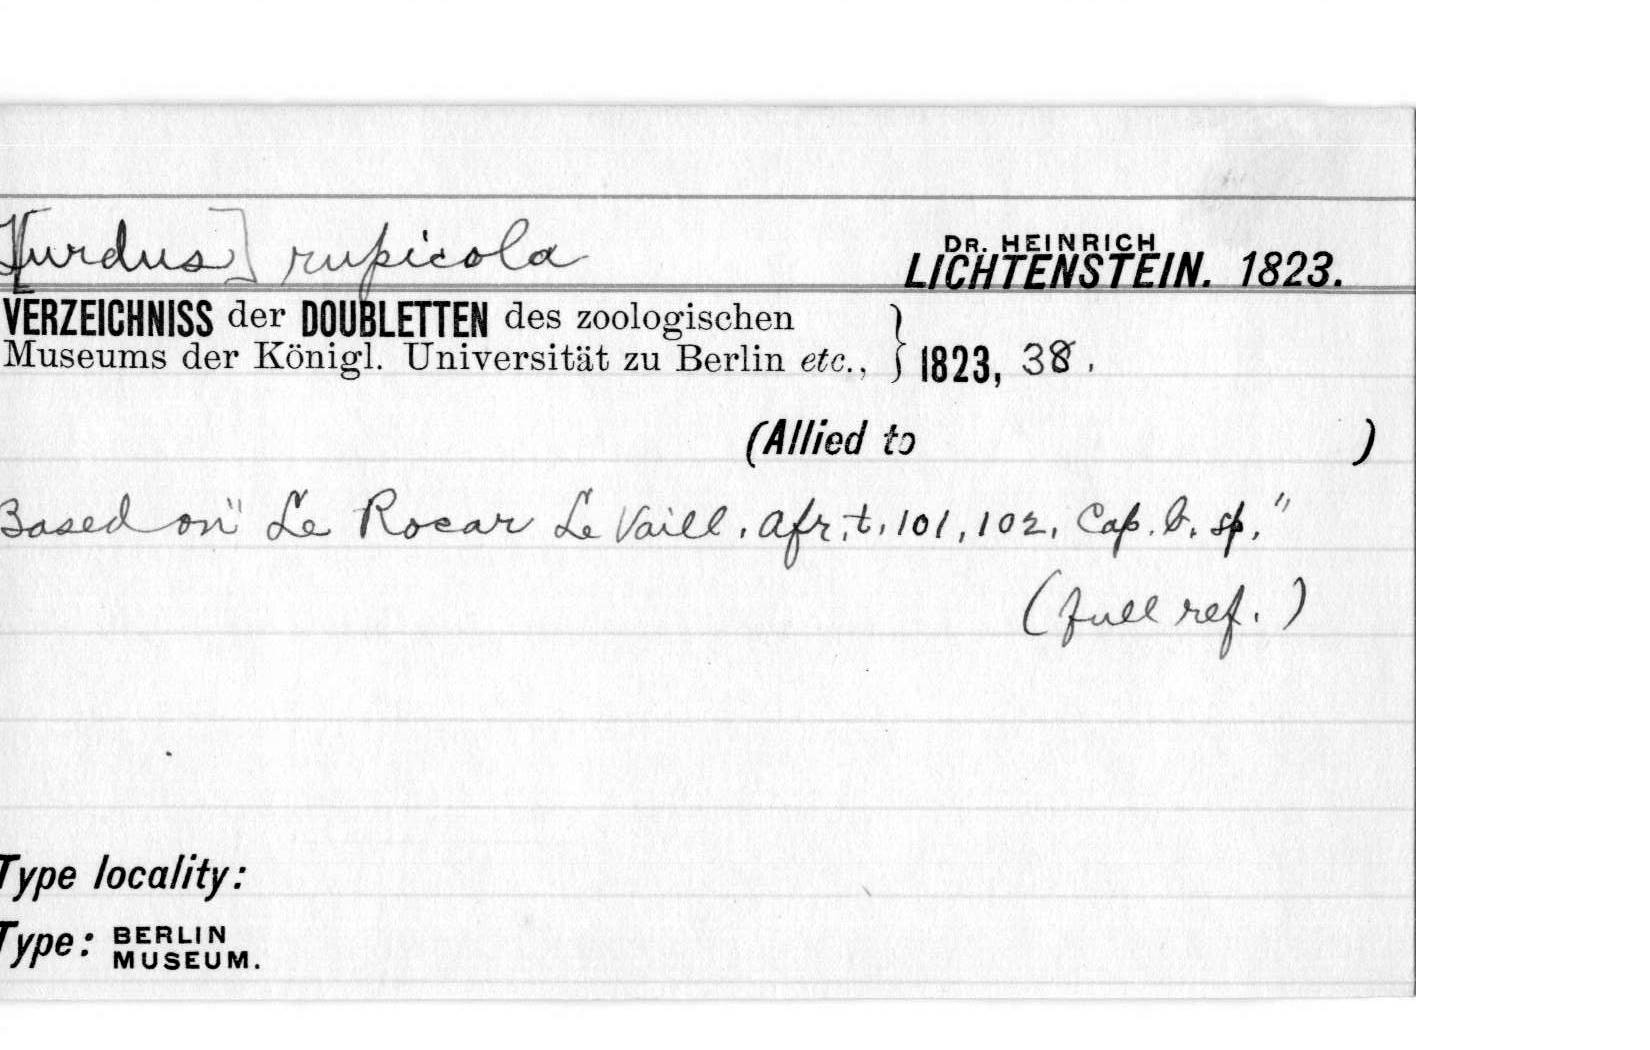 [Turdus] rupicola
DR. HEINRICH
LICHTENSTEIN. 1823.
VERZEICHNISS der DOUBLETTEN des zoologischen
Museums der Königl. Universität zu Berlin etc., } 1823, 38.
(Allied to )
Based on "Le Rocar Le Vaill. afr. t. 101, 102. Cap. b. sp."
(full ref.)
Type locality:
Type: BERLIN
MUSEUM.